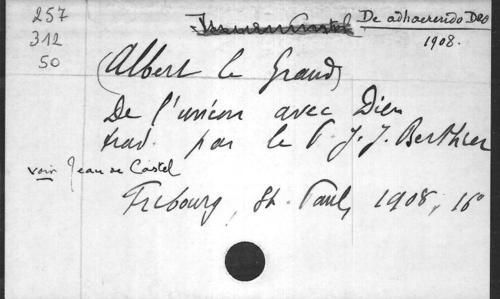 257
312
50
De adhaerendo DEO
1908.
(Albert le Grand)
De l'union avec Dieu
trad. par le P. J. J. Berthier
voir Jean de Castel
Fribourg, St. Paul, 1908, 16°